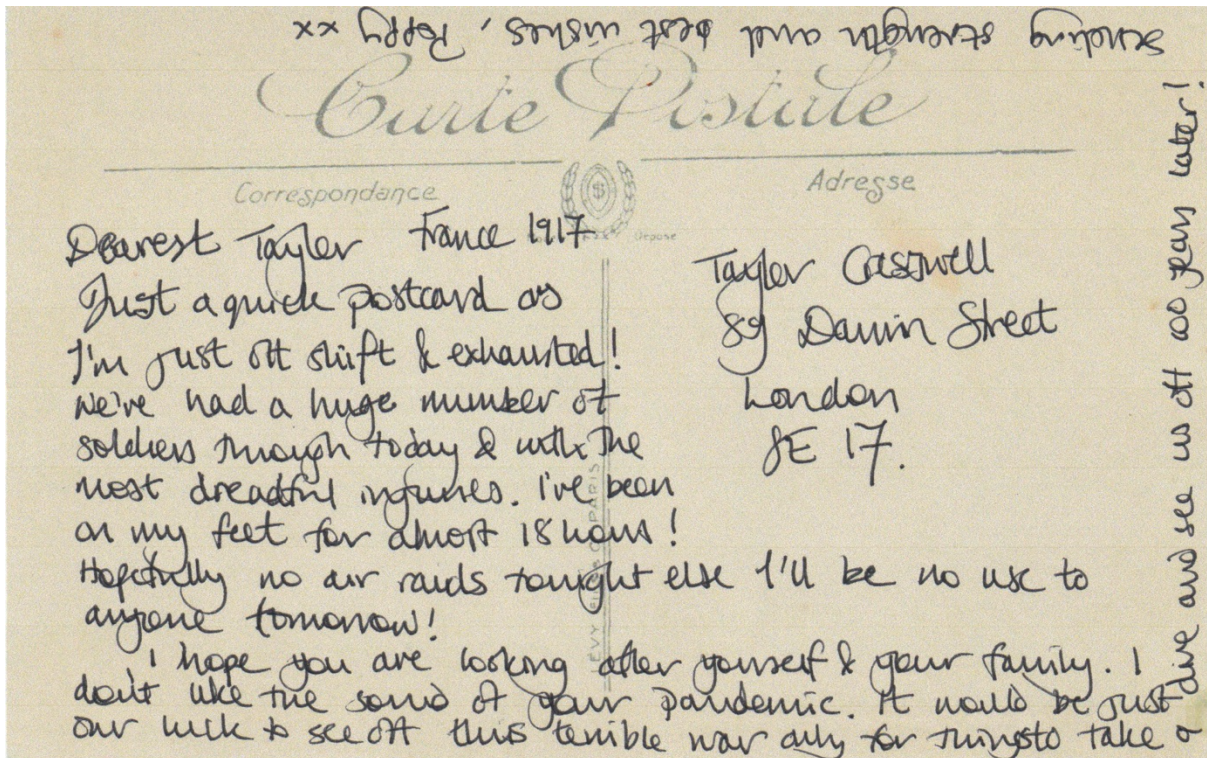 Carte Postale
Correspondance
Adresse
Dearest Taylor France 1917
Just a quick postcard as
I'm just off shift & exhausted!
We've had a huge number of
soldiers through today & with the
most dreadful injuries. I've been
on my feet for almost 18 hours!
Hopefully no air raids tonight else I'll be no use to
anyone tomorrow!
I hope you are looking after yourself & your family. I
don't like the sound of your pandemic. It would be just
our luck to see off this terrible war only for things to take
a dive and see us off 100 years later!
Sending strength and best wishes, Poppy xx
Taylor Casswell
89 Darwin Street
London
SE 17.
PARIS